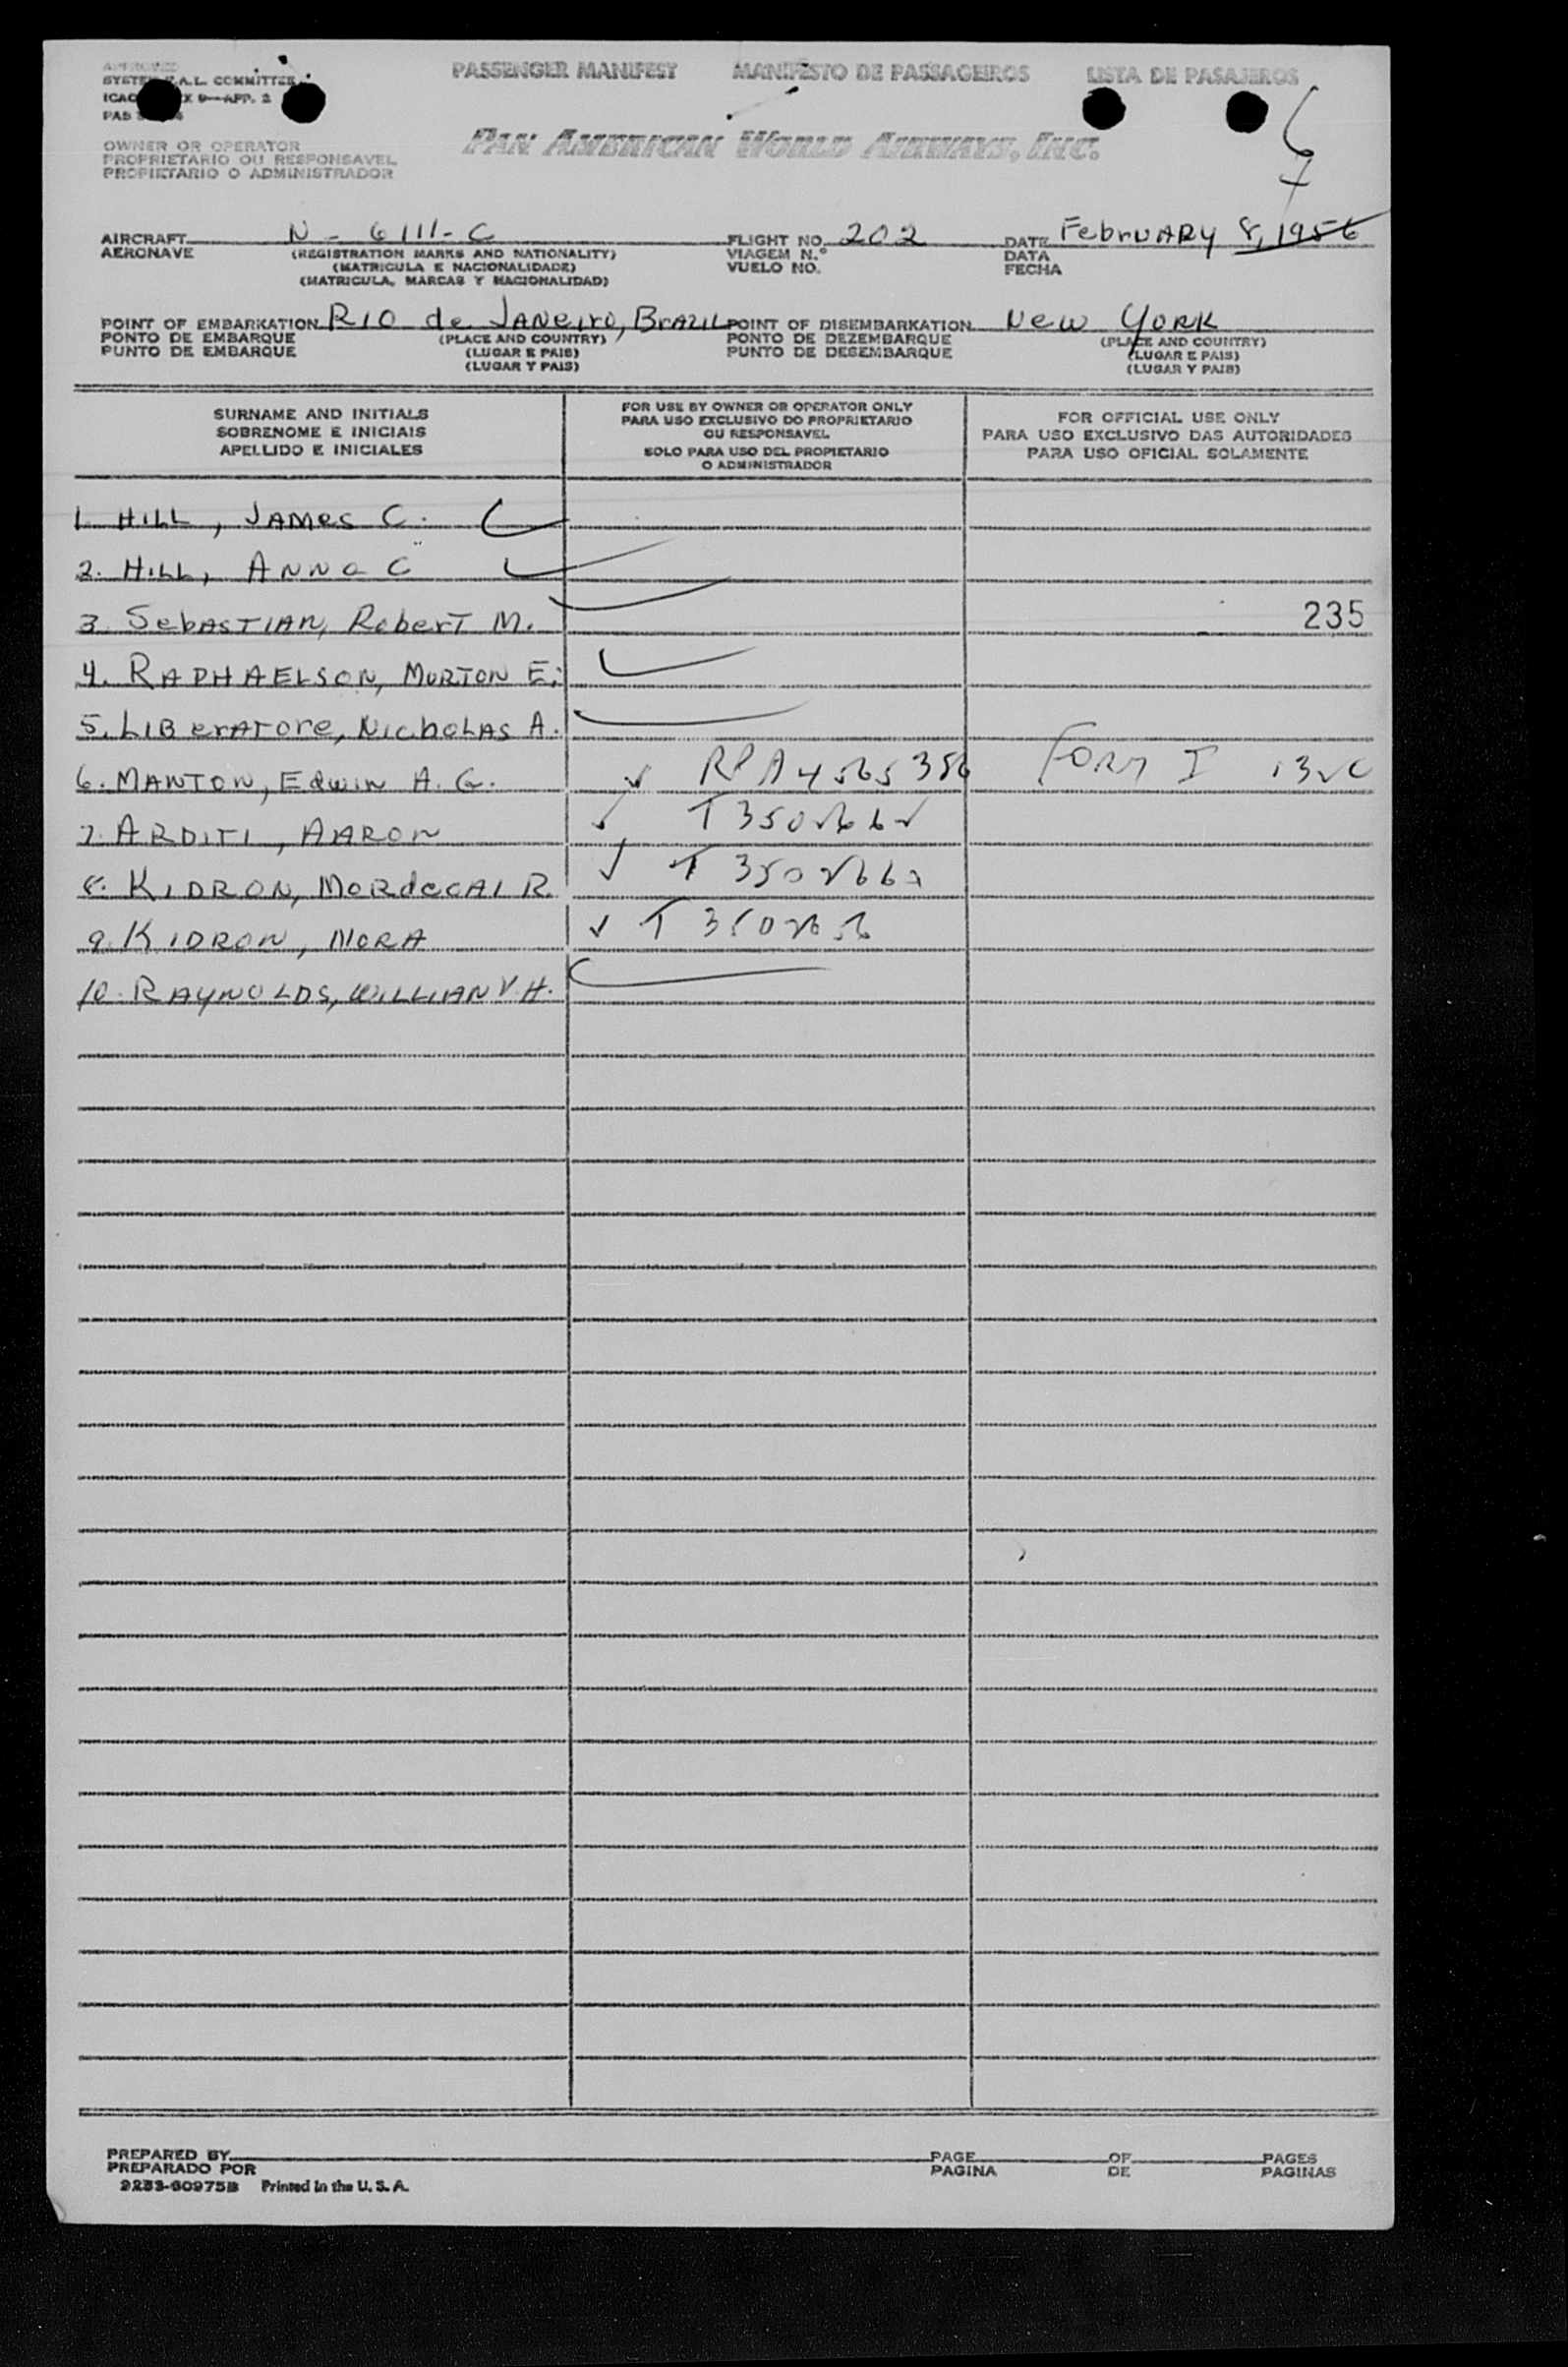 APPROVED
SYSTEM F.A.L. COMMITTEE
ICAO X 9—APP. 2
PAD
PASSENGER MANIFEST MANIFESTO DE PASSAGEIROS LISTA DE PASAJEROS
OWNER OR OPERATOR
PROPRIETARIO OU RESPONSAVEL
PROPIETARIO O ADMINISTRADOR
PAN AMERICAN WORLD AIRWAYS, INC.
AIRCRAFT N - 6111 - C FLIGHT NO. 202 DATE FebruARy 8, 1956
AERONAVE (REGISTRATION MARKS AND NATIONALITY) VIAGEM N.° DATA
(MATRICULA E NACIONALIDADE) VUELO NO. FECHA
(MATRICULA, MARCAS Y NACIONALIDAD)
POINT OF EMBARKATION RIO de JANeiro, BrAZIL POINT OF DISEMBARKATION New YORK
PONTO DE EMBARQUE (PLACE AND COUNTRY) PONTO DE DEZEMBARQUE (PLACE AND COUNTRY)
PUNTO DE EMBARQUE (LUGAR E PAIS) PUNTO DE DESEMBARQUE (LUGAR E PAIS)
(LUGAR Y PAIS) (LUGAR Y PAIS)
SURNAME AND INITIALS
SOBRENOME E INICIAIS
APELLIDO E INICIALES
FOR USE BY OWNER OR OPERATOR ONLY
PARA USO EXCLUSIVO DO PROPRIETARIO
OU RESPONSAVEL
SOLO PARA USO DEL PROPIETARIO
O ADMINISTRADOR
FOR OFFICIAL USE ONLY
PARA USO EXCLUSIVO DAS AUTORIDADES
PARA USO OFICIAL SOLAMENTE
1. HILL, JAMes C.
2. HILL, ANNA C
3. SebASTIAN, RoberT M. 235
4. RAPHAELSON, MORTON E.
5. LIBerATOre, NIchOLAS A.
6. MANTON, EdwIN A. G. RPA 4565356 FORM I
7. ARDITI, AARON
8. KIDRON, MORdecAI R.
9. KIDRON, NORA
10. RAYNOLDS, WILLIAN V.H.
PREPARED BY PAGE OF PAGES
PREPARADO POR PAGINA DE PAGINAS
9253-60975B Printed in the U. S. A.